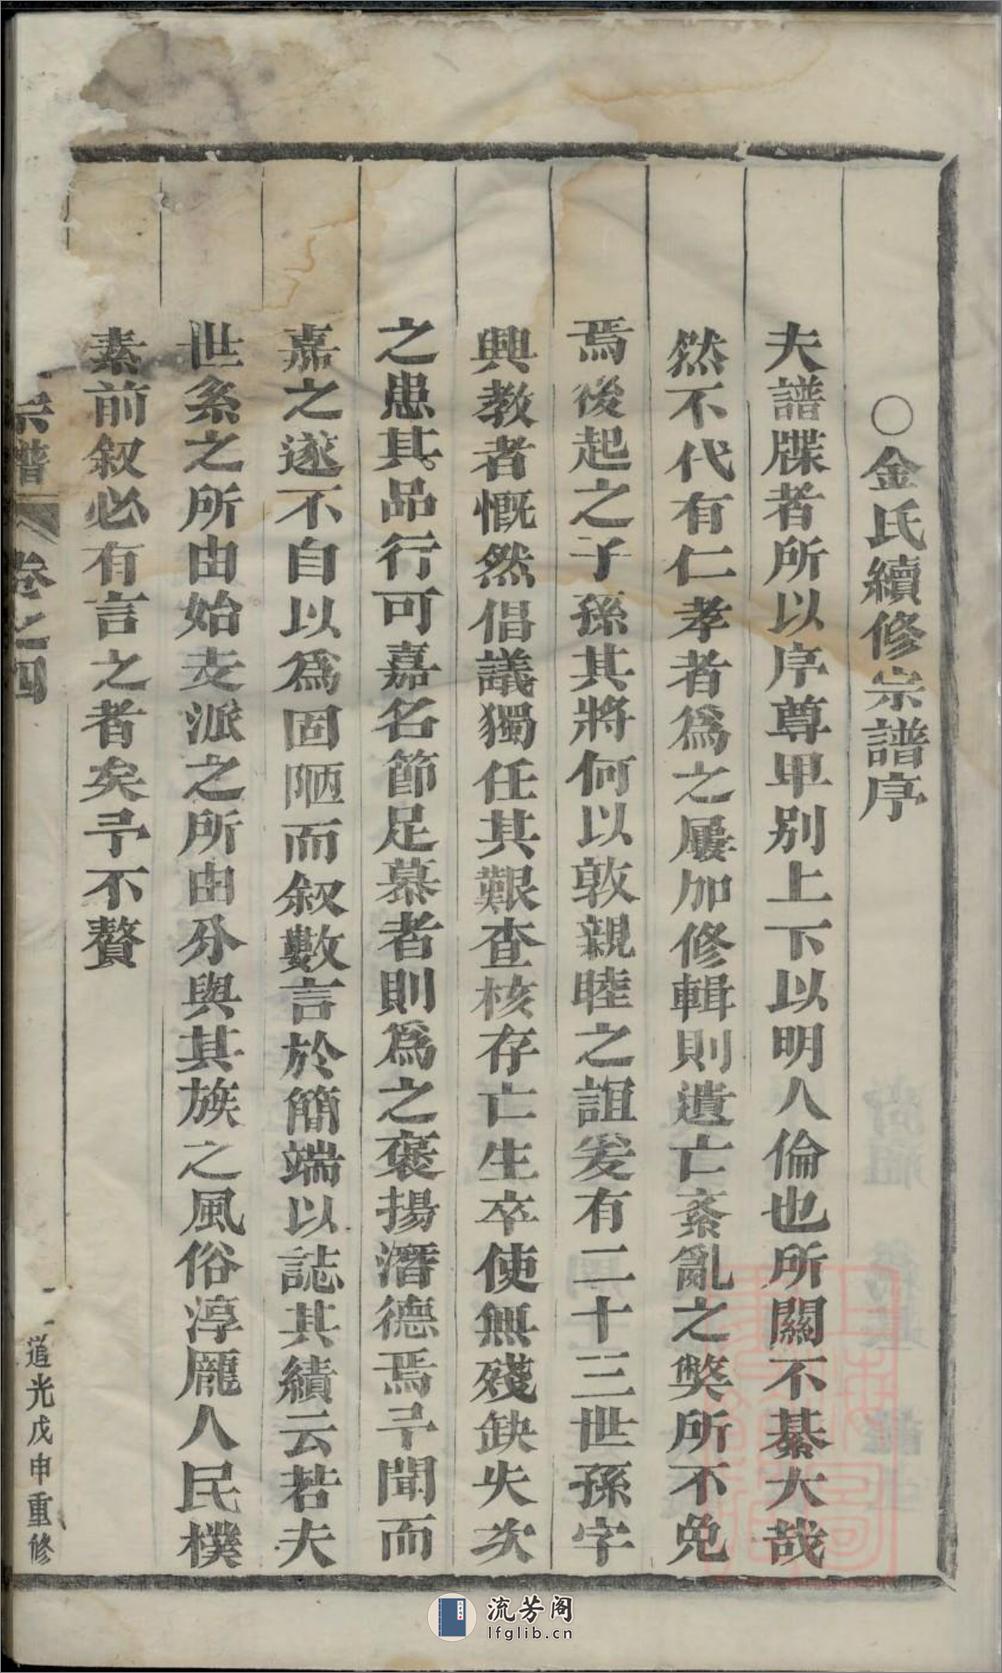 ○金氏續修宗譜序
夫譜牒者所以序尊卑别上下以明人倫也所關不綦大哉
然不代有仁孝者爲之屢加修輯則遺亡紊亂之弊所不免
焉後起之子孫其將何以敦親睦之誼爰有二十三世孫字
興教者慨然倡議獨任其艱查核存亡生卒使無殘缺失次
之患其品行可嘉名節足慕者則爲之褒揚潛德焉予聞而
嘉之遂不自以爲固陋而叙數言於簡端以誌其績云若夫
世系之所由始支派之所由分與其族之風俗淳龎人民樸
素前叙必有言之者矣予不贅
宗譜 卷之四
道光戊申重修
流芳阁
lfglib.cn